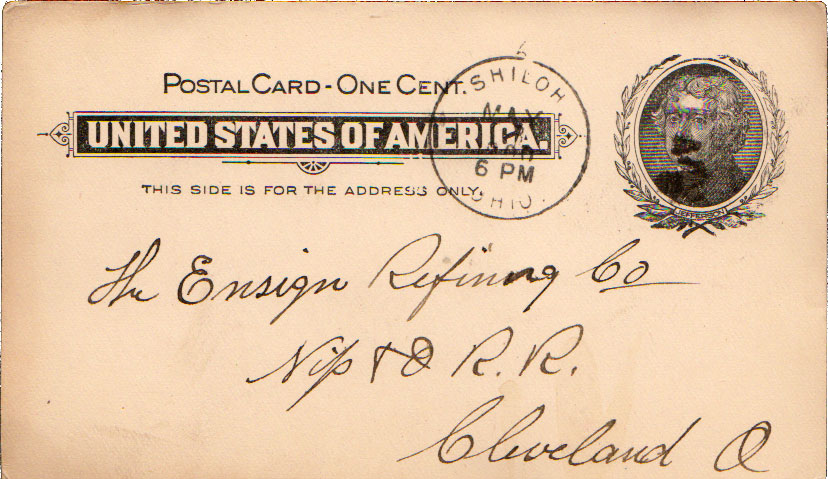 POSTAL CARD - ONE CENT.
UNITED STATES OF AMERICA.
THIS SIDE IS FOR THE ADDRESS ONLY.
SHILOH
MAY
6 PM
OHIO
JEFFERSON
The Ensign Refining Co
& O R. R.
Cleveland O